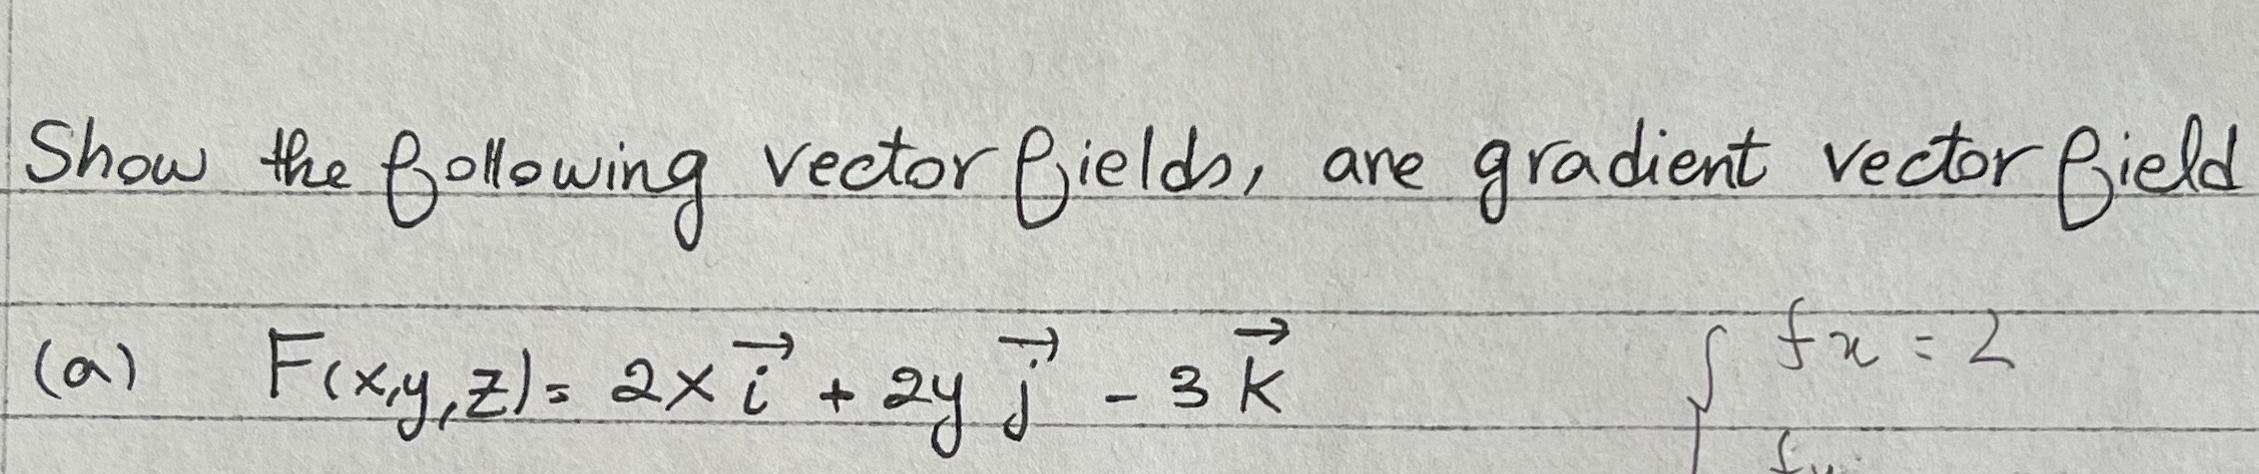 Show the following vector fields, are gradient vector field
(a) F(x,y,z)= 2x i⃗ + 2y j⃗ - 3 k⃗
{ fx = 2
fy